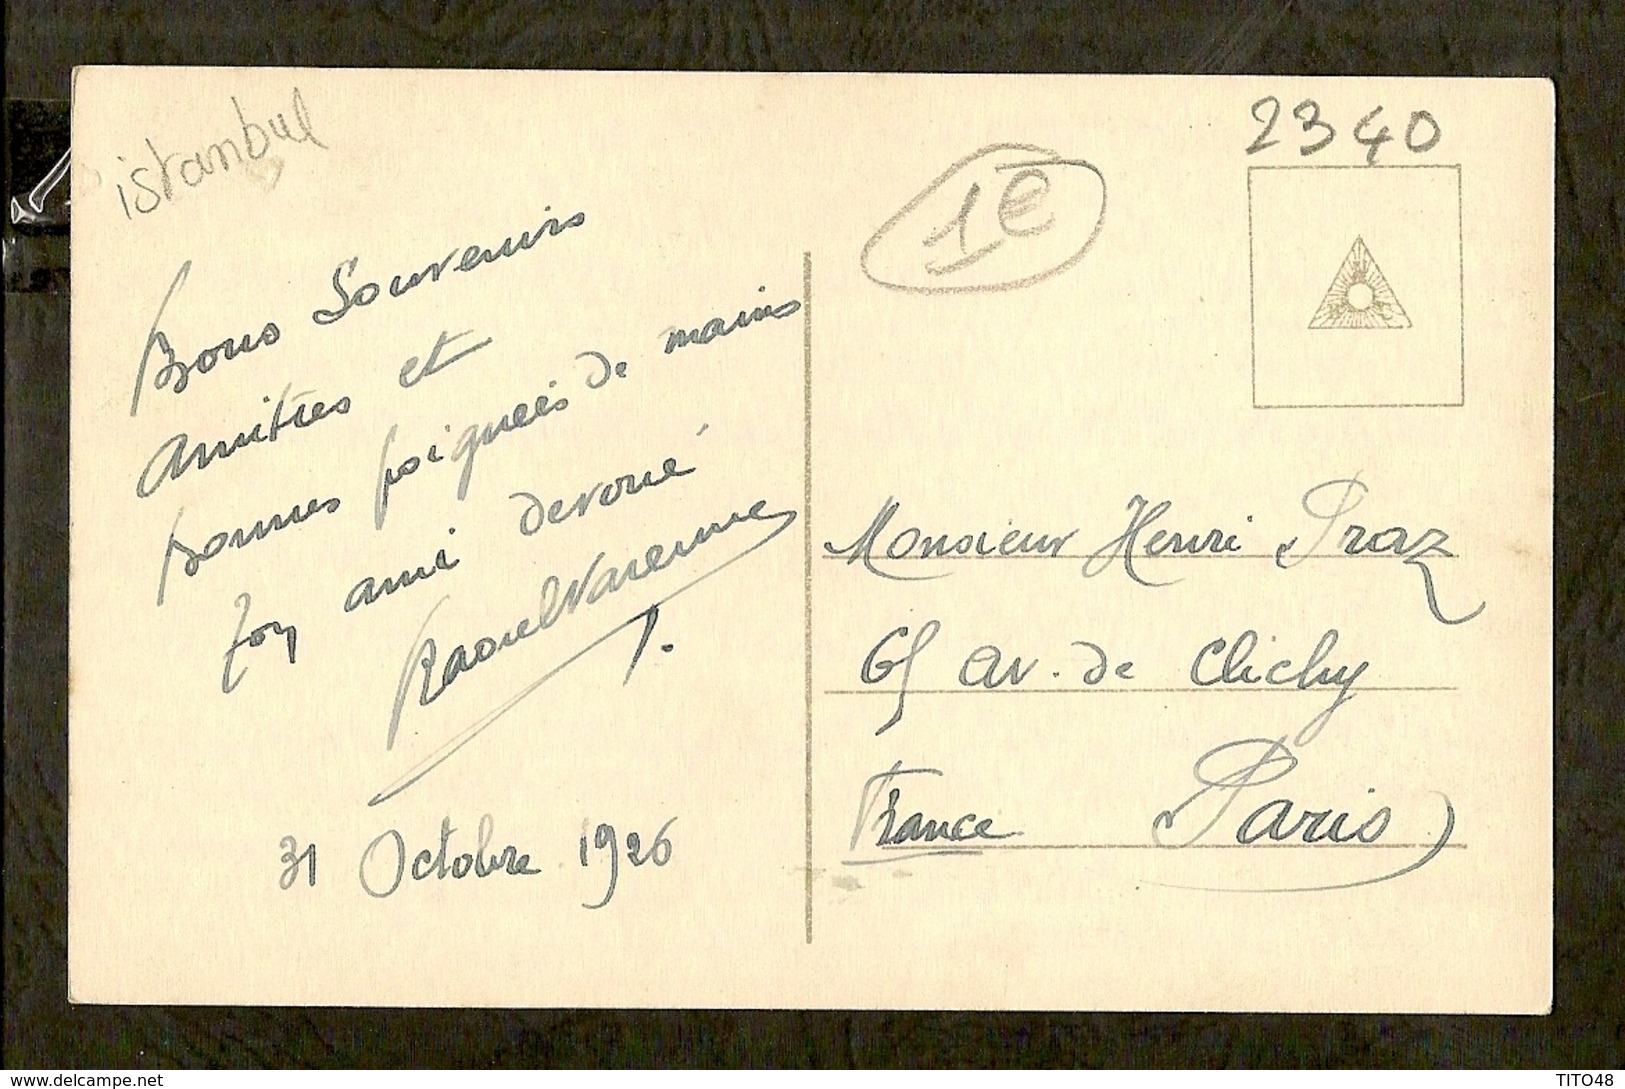 istanbul
Bons Souvenirs
Amitiés et
bonnes poignées de mains
Ton ami dévoué
Raoul Varenne
31 Octobre 1926
1€
2340
Monsieur Henri Praz
65 av. de Clichy
France Paris
delcampe.net
TITO48